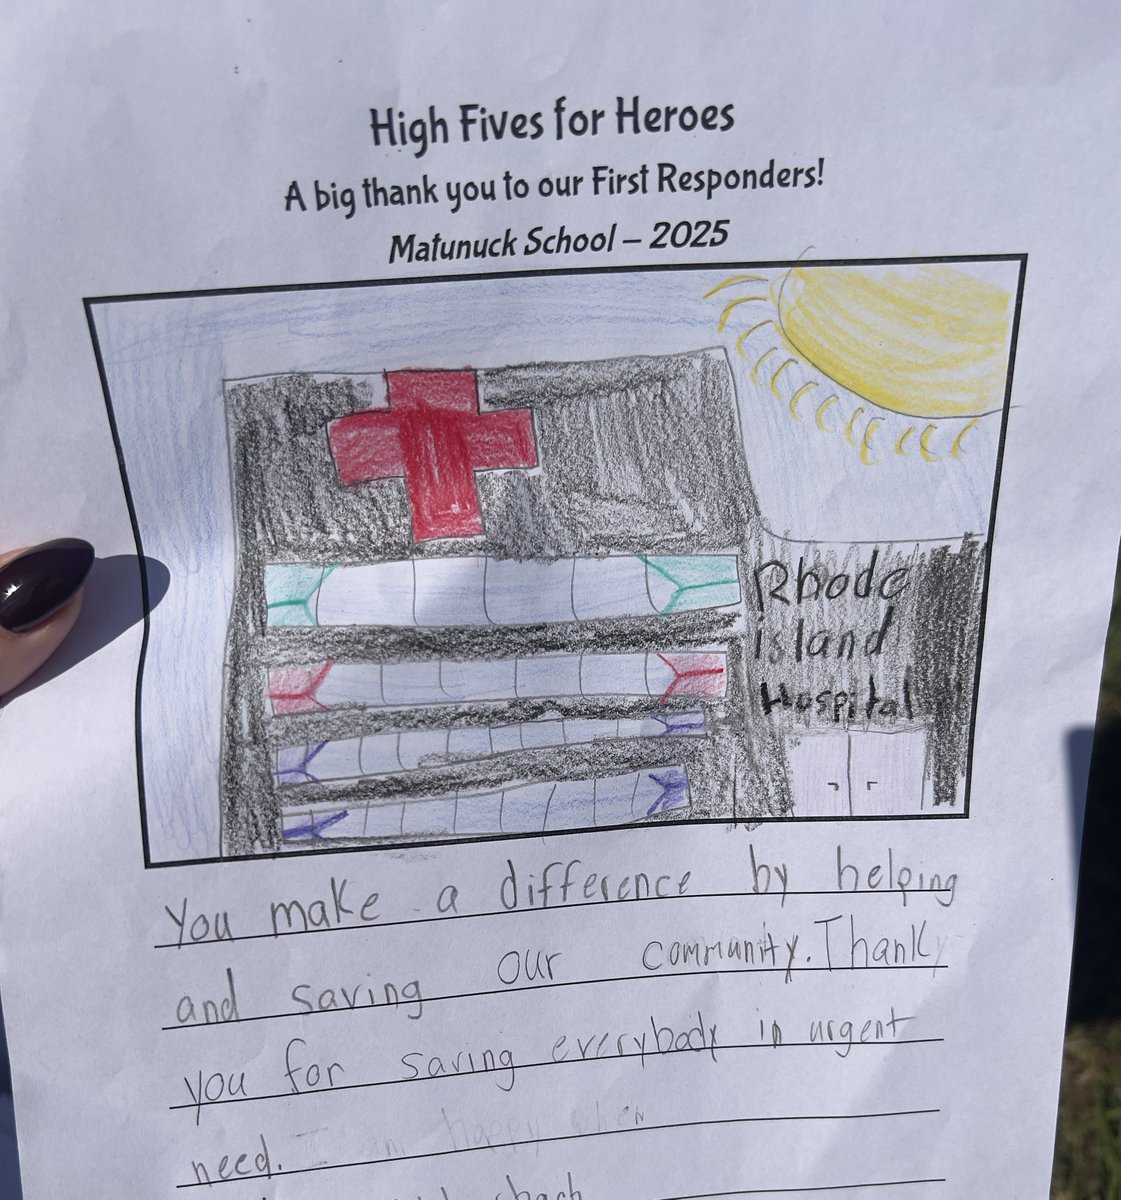 High Fives for Heroes
A big thank you to our First Responders!
Matunuck School – 2025
Rhode
island
Hospital
You make a difference by helping
and saving our community. Thank
you for saving everybody in urgent
need. I am happy when